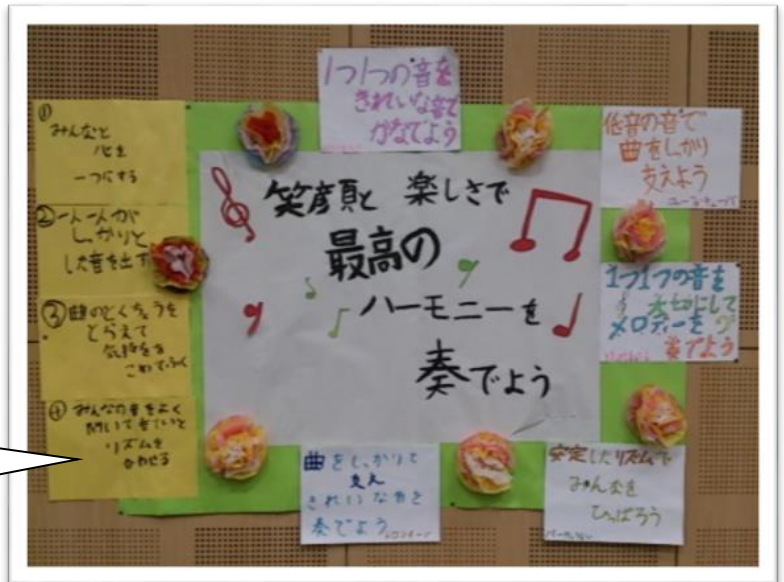 ①
みんなと
心を
一つにする
②一人一人が
しっかりと
した音を出す
③曲のとくちょうを
とらえて
気持ちを
こめてふく
④みんなの音をよく
聞いて
リズムを
合わせる
1つ1つの音を
きれいな音で
かなでよう
笑顔と 楽しさで
最高の
ハーモニーを
奏でよう
低音の音で
曲をしっかり
支えよう
1つ1つの音を
大切にして
メロディーを
奏でよう
曲をしっかりと
支え
きれいな音を
奏でよう
安定したリズムで
みんなを
ひっぱろう